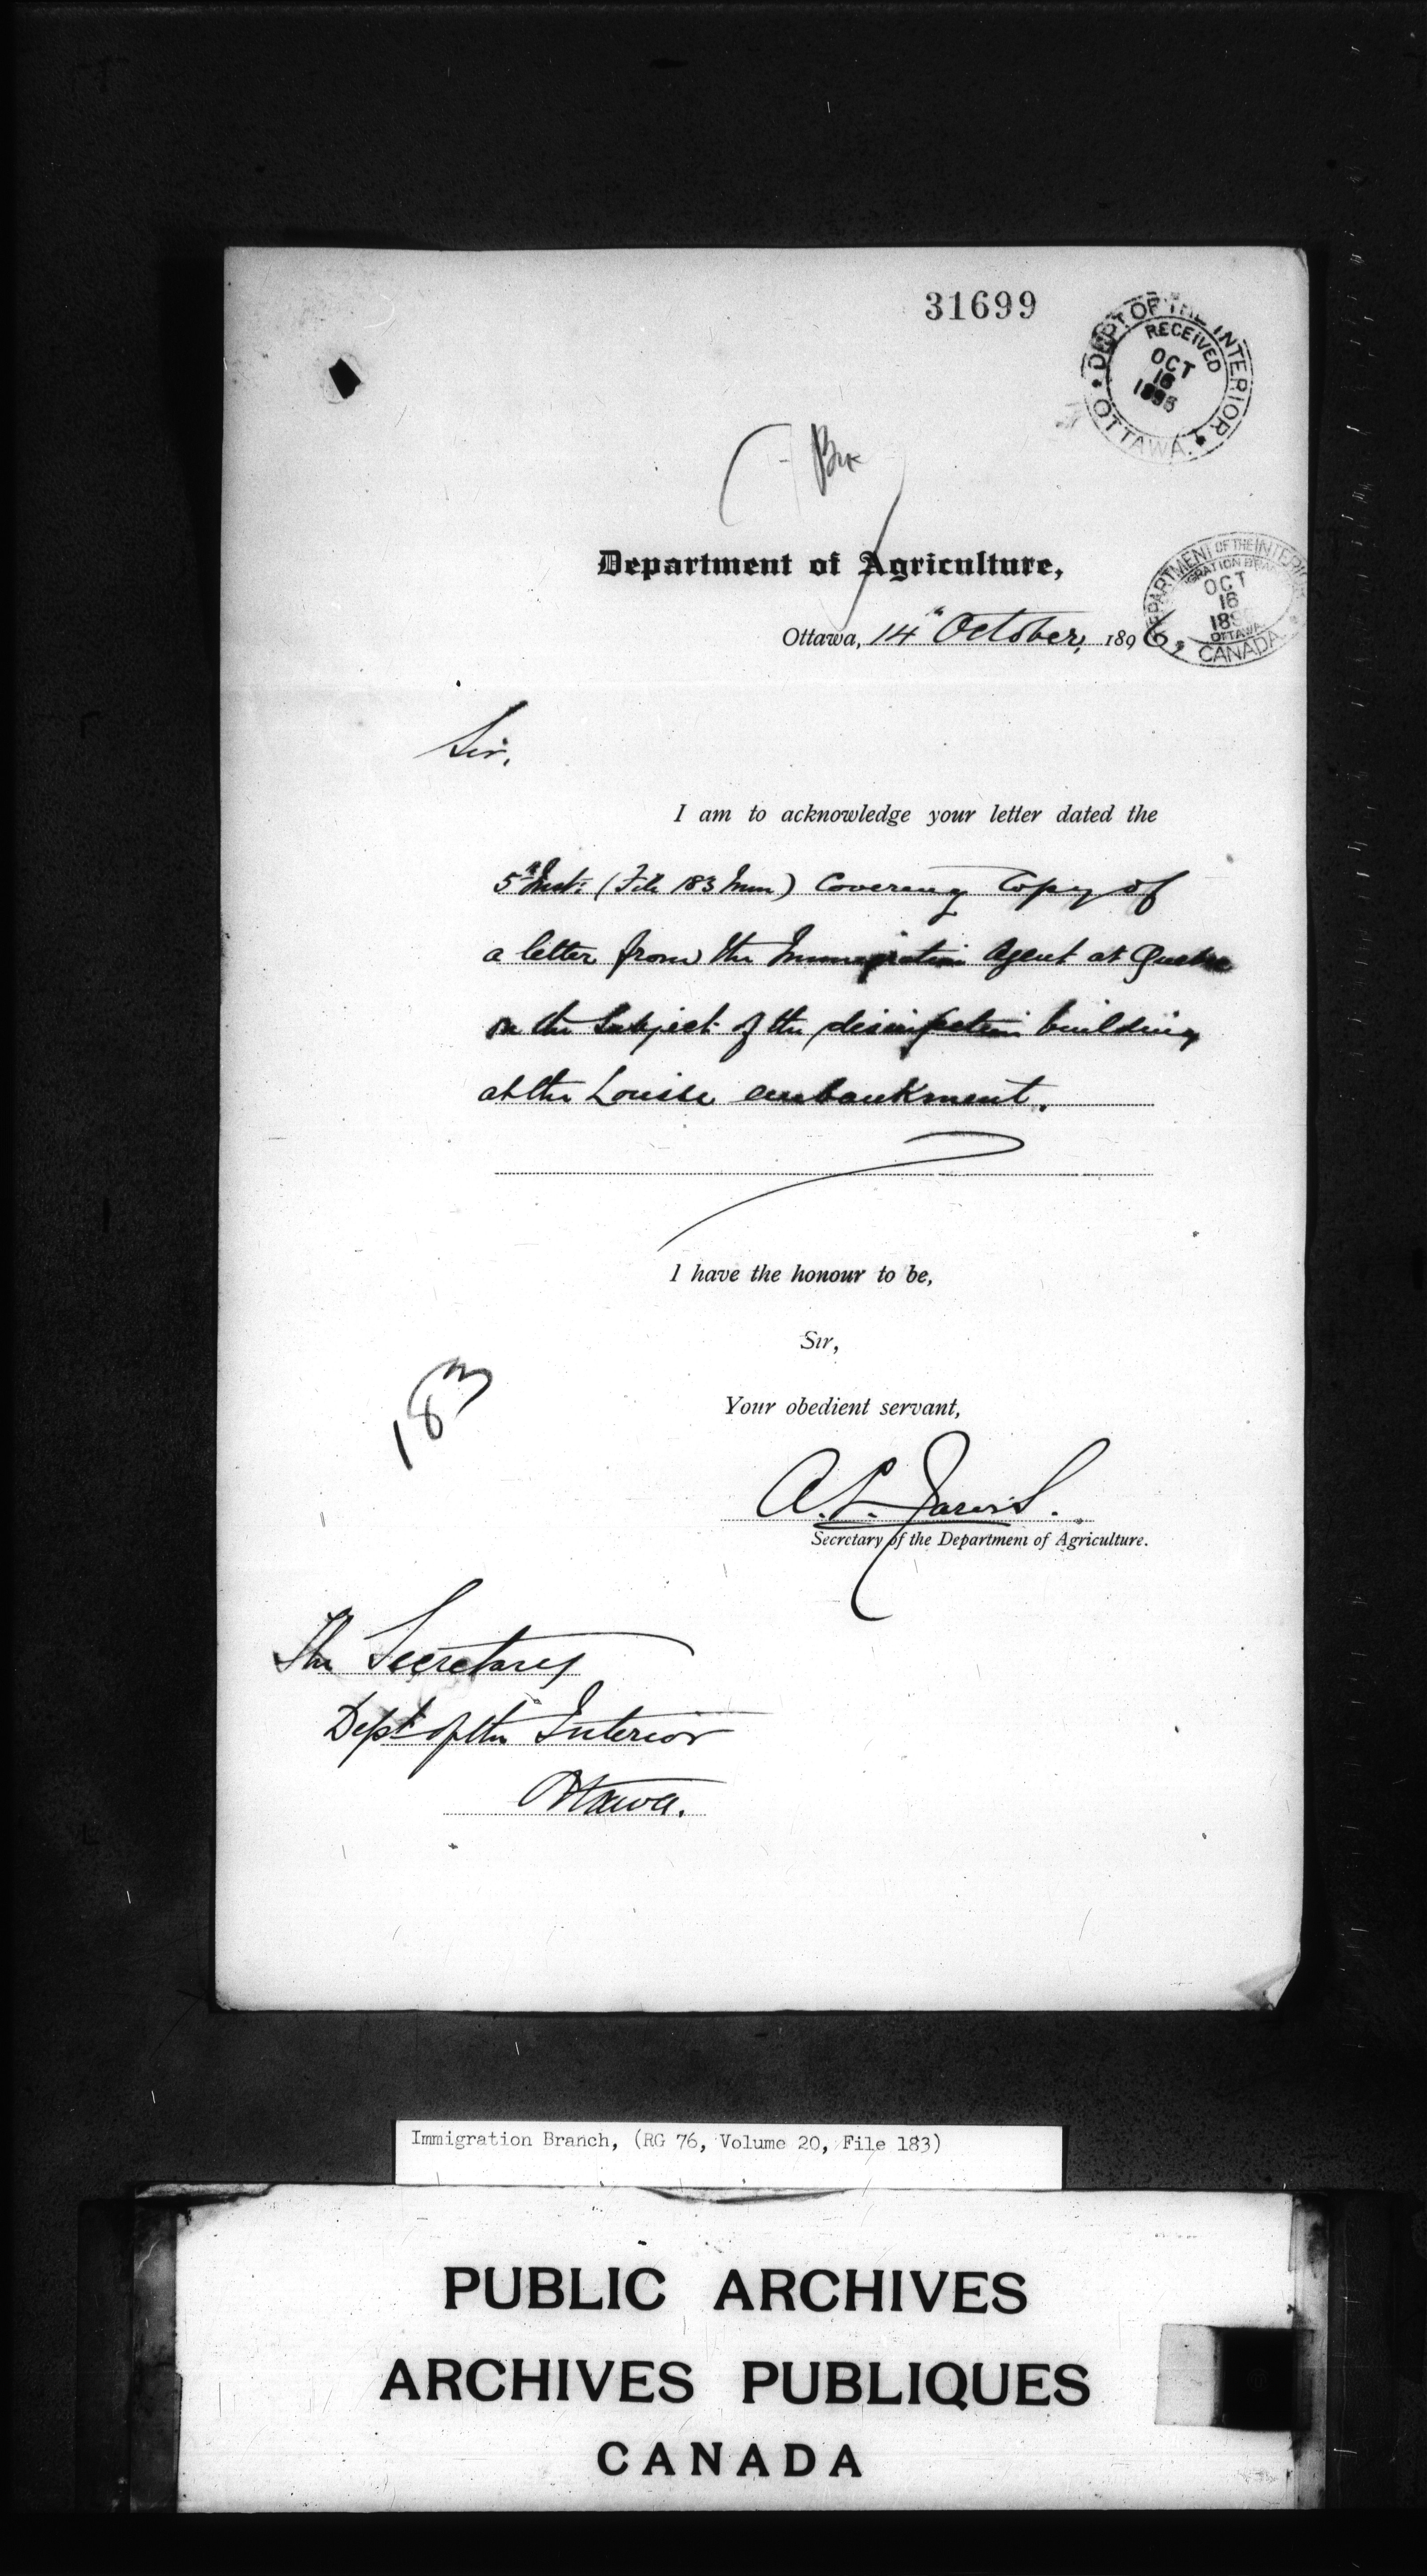 31699
DEPT OF THE INTERIOR
RECEIVED
OCT
16
1896
OTTAWA.
Department of Agriculture,
DEPARTMENT OF THE INTERIOR
IMMIGRATION BRANCH
OCT
16
189
OTTAWA
CANADA
Ottawa, 14" October, 1896,
Sir,
I am to acknowledge your letter dated the
5" Inst: (File 183 Imm) Covering Copy of
a letter from the Immigration Agent at Quebec
on the Subject of the disinfection building
at the Louise embankment.
I have the honour to be,
Sir,
Your obedient servant,
183
A. L. Jarvis.
Secretary of the Department of Agriculture.
The Secretary
Dept of the Interior
Ottawa.
Immigration Branch, (RG 76, Volume 20, File 183)
PUBLIC ARCHIVES
ARCHIVES PUBLIQUES
CANADA